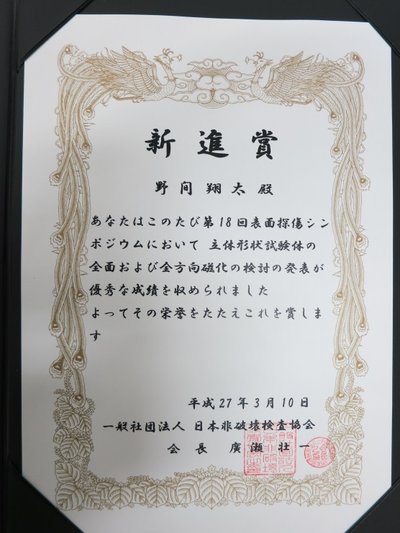 新進賞
野間翔太殿
あなたはこのたび第18回表面探傷シン
ポジウムにおいて 立体形状試験体の
全面および全方向磁化の検討の発表が
優秀な成績を収められました
よってその栄誉をたたえこれを賞しま
す
平成27年3月10日
一般社団法人 日本非破壊検査協会
会長 廣瀬壮一